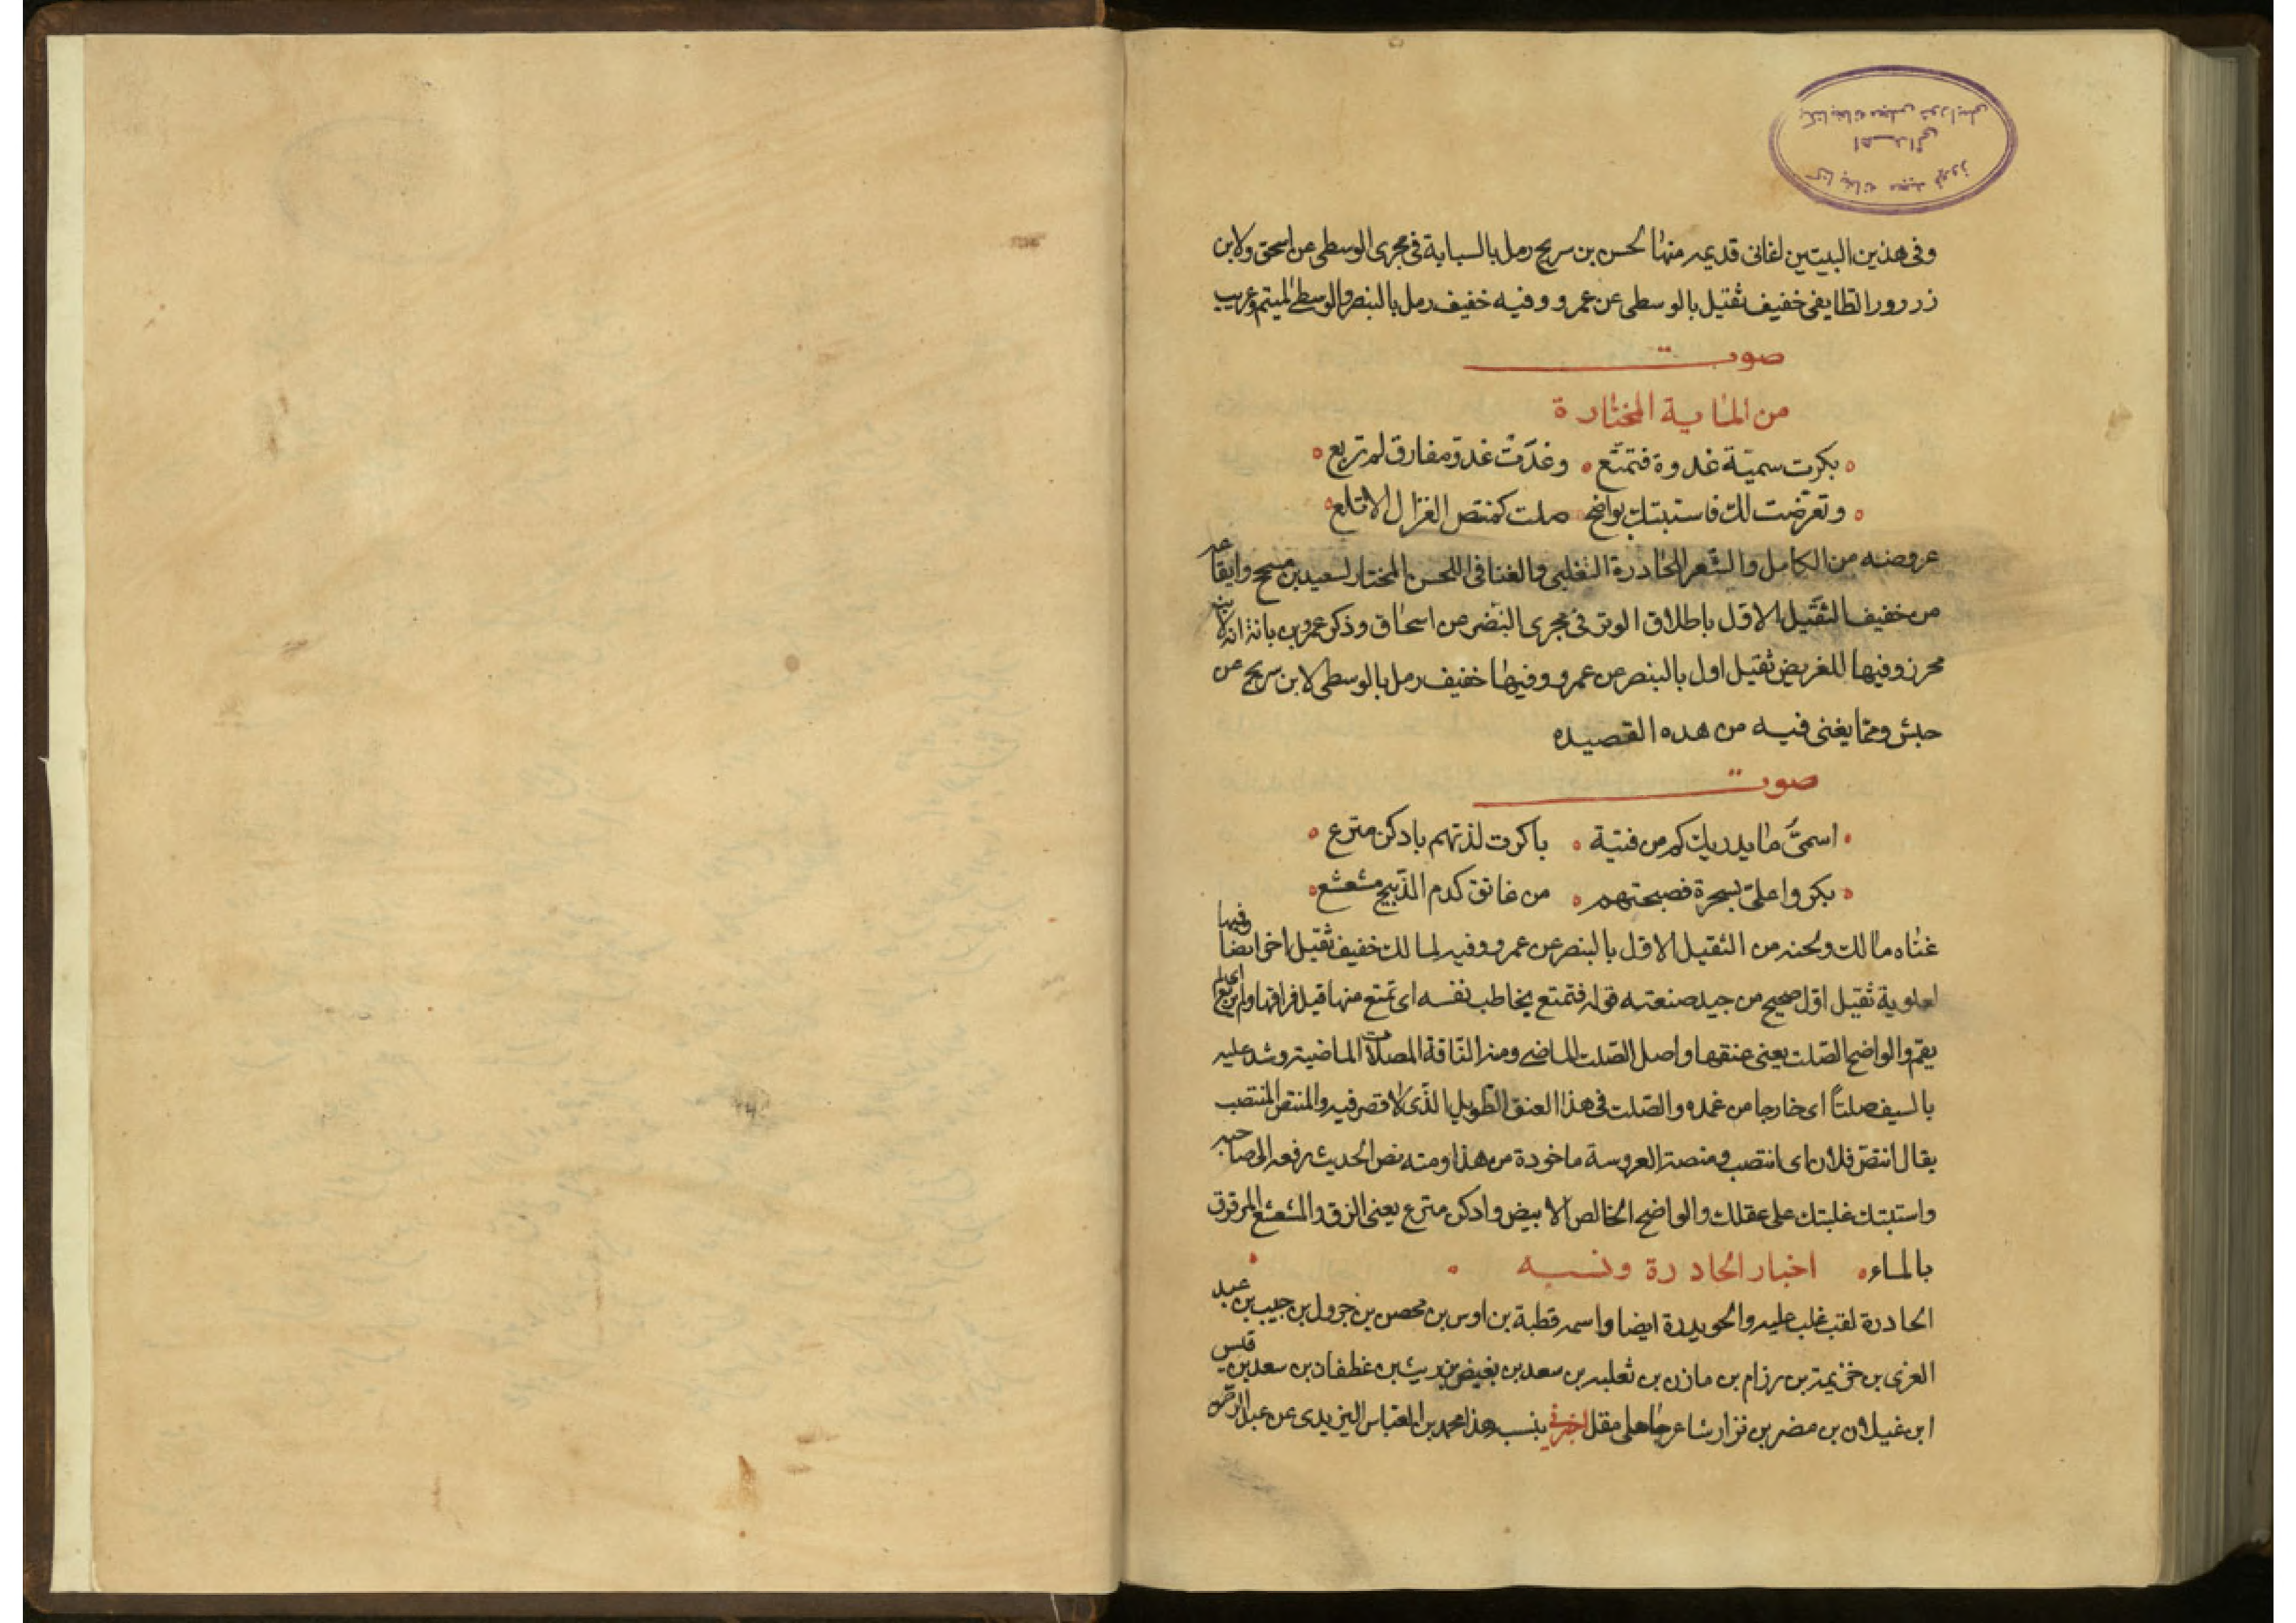 كتابخانه مجيد فيروز
اهدائى
بكتابخانه مجلس شورايملى
وفى هذين البيتين لغانى قديمه منها الحسن بن سريج رمل بالسبابة فى مجرى الوسطى عن اسحق ولابن
زرزور الطايفى خفيف ثقيل بالوسطى عن عمرو وفيه خفيف رمل بالبنصر والوسطى لمتيم وعريب
صوت
من الماية المختارة
بكرت سميّة غدوة فتمتّع وغدَت غدوّ مفارق لم تربع
وتعرّضت لك فاستبتك بواضح صلت كمنتص الغزال الاتلع
عروضه من الكامل والشّعر الحادرة الثغلبى والغنا فى اللحن المختار لسعيد بن مسجح وايقاعه
من خفيف الثقيل الاول باطلاق الوتر فى مجرى البنصر من اسحاق وذكر عمرو بن بانة انه لابن
محرز وفيها للغريض ثقيل اول بالبنصر عن عمرو وفيها خفيف رمل بالوسطى لابن سريج عن
حبش ومما يغنى فيه من هده القصيده
صوت
اسمىَّ ما يدريك كم من فتية باكرت لذتهم بادكن مترع
بكروا علىّ بسحرة فصبحتهم من عاتق كدم الذبيح مشعشع
غناه مالك ولحنه من الثقيل الاول بالبنصر عن عمرو وفيه لمالك خفيف ثقيل اخر ايضا وفيها
لعلوية ثقيل اول صحيح من جيد صنعته قوله فتمتع يخاطب نفسه اى تمتع منها قبل فراقها ولم يربع اى لم
يقم والواضح الصّلت يعنى عنقها واصل الصّلت الماضى ومنه النّاقة المصلات الماضية وشد عليه
بالسيف صلتاً اى خارجا من غمده والصّلت فى هذا العنق الطّويل الذى لا قصر فيه والمنتص المنتصب
يقال انتصّ فلان اى انتصب ومنصة العروسة ماخودة من هذا ومنه نص الحديث رفعه الى صاحبه
واستبتك غلبتك على عقلك والواضح الخالص الابيض وادكن مترع يعنى الزق والمشعشع المرقوق
بالماء اخبار الحادرة ونسبه
الحادرة لقب غلب عليه والحويدرة ايضا واسمه قطبة بن اوس بن محصن بن جرول بن حبيب بن عبد
العزى بن خزيمة بن رزام بن مازن بن ثعلبه بن سعد بن بغيض بن ريث بن غطفان بن سعد بن قيس
ابن غيلان بن مضر بن نزار شاعر جاهلى مقل اخبرنى بنسبه هذا محمد بن العباس اليزيدى عن عبد الرحمن